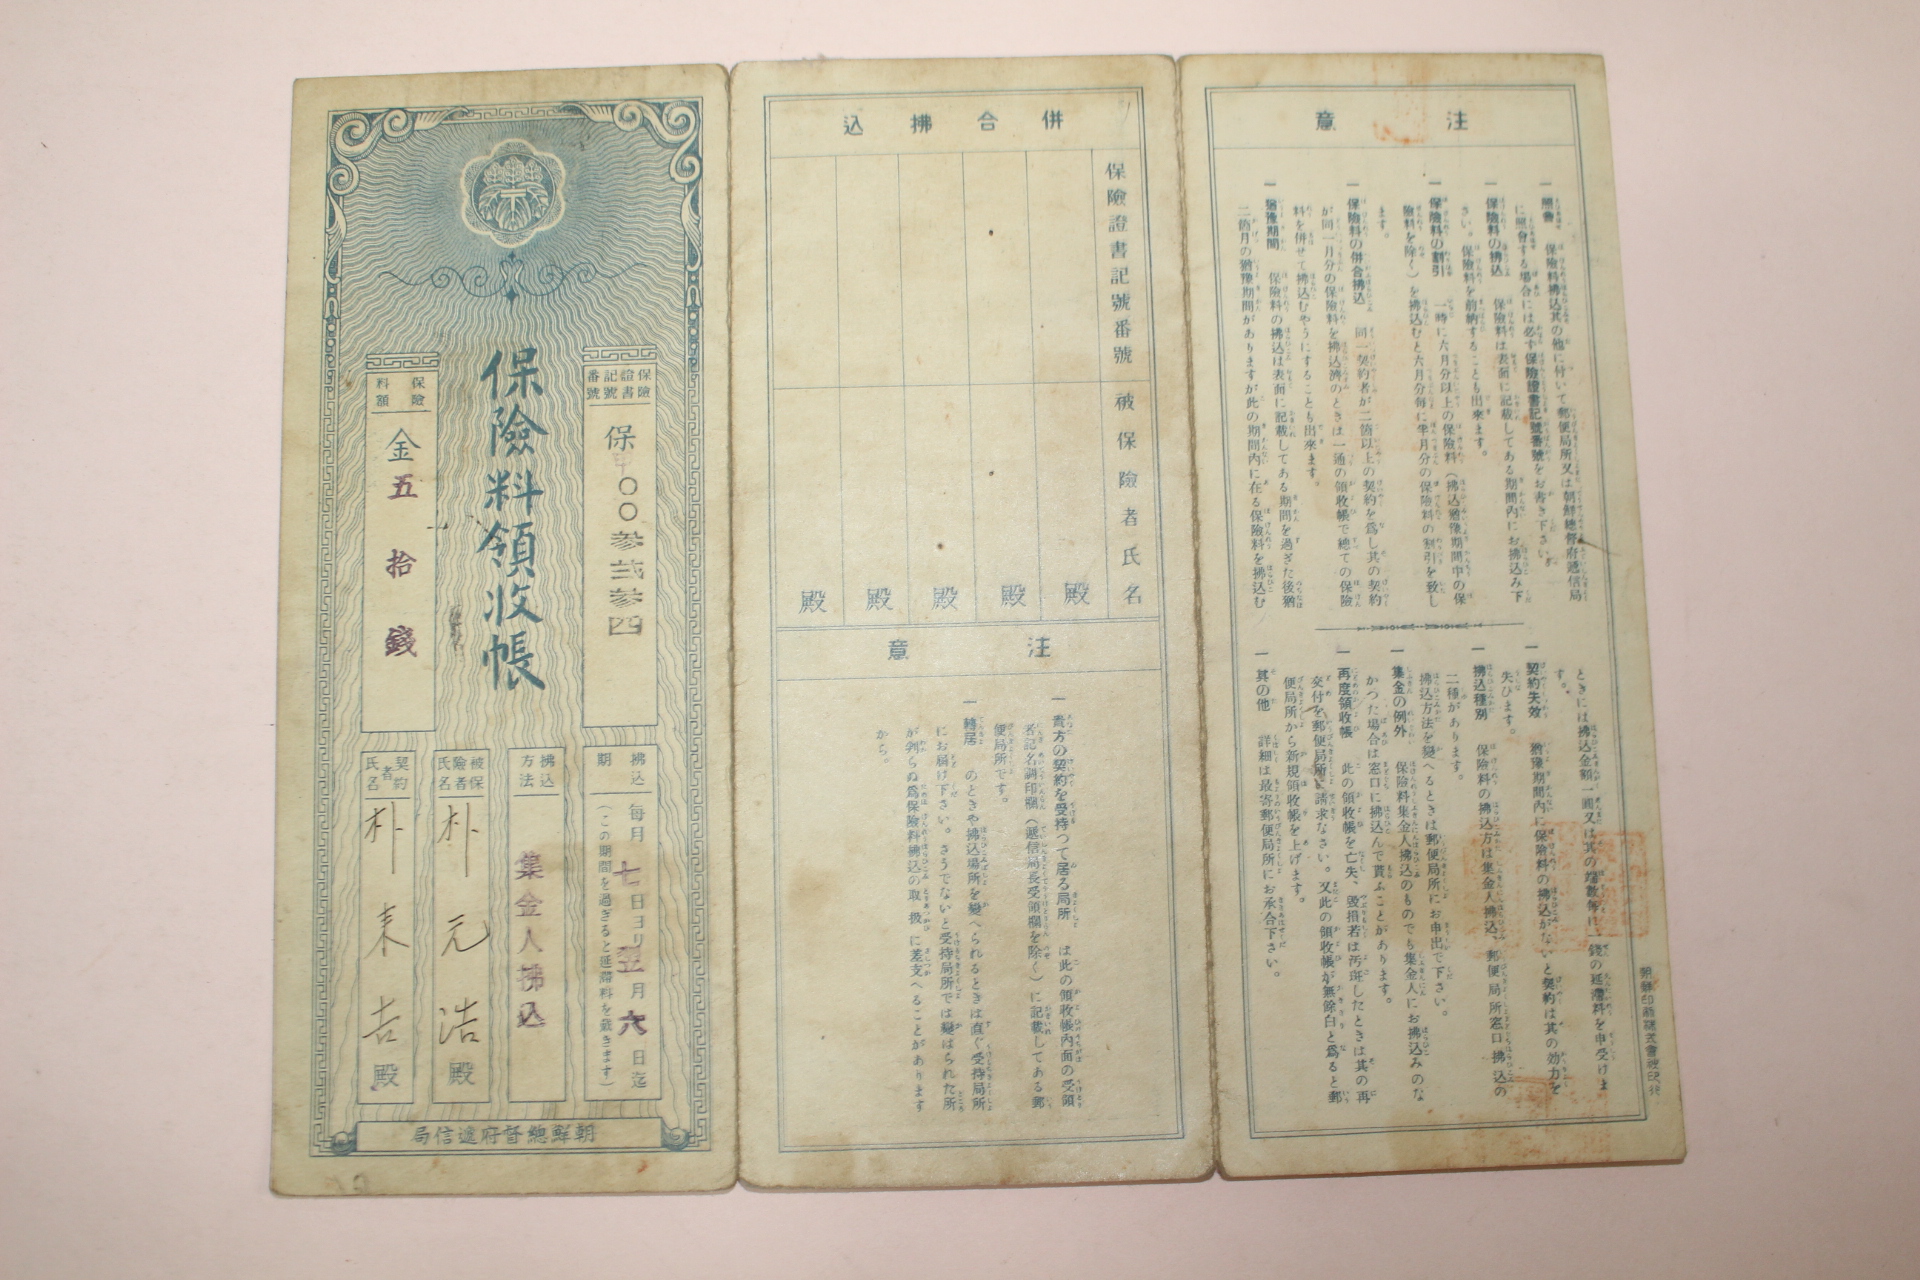 保險料領收帳
保險證書記號番號
保
〇〇參弐參四
保險料額
金五拾錢
拂込期
每月七日ヨリ翌月六日迄
(この期間を過ぎると延滯料を戴きます)
拂込方法
集金人拂込
被保險者氏名
朴元浩殿
契約者氏名
朴来吉殿
朝鮮總督府遞信局
併合拂込
保險證書記號番號
被保險者氏名
殿
殿
殿
殿
殿
注意
一 貴方の契約を受持つて居る局所 は此の領收帳內面の受領
者記名調印欄(遞信局長受領欄を除く)に記載してある郵
便局所です。
一 轉居 のときや拂込場所を變へられるときは直ぐ受持局所
にお屆け下さい。さうでないと受持局所では變はられた所
が判らぬ爲保險料拂込の取扱に差支へることがあります
から。
注意
一 照會 保險料拂込其の他に付いて郵便局所又は朝鮮總督府遞信局
に照會する場合には必ず保險證書記號番號をお書き下さい。
一 保險料の拂込 保險料は表面に記載してある期間內にお拂込み下
さい。保險料を前納することも出來ます。
一 保險料の割引 一時に六月分以上の保險料(拂込猶豫期間中の保
險料を除く)を拂込むと六月分每に半月分の保險料の割引を致し
ます。
一 保險料の併合拂込 同一契約者が二箇以上の契約を爲し其の契約
が同一月分の保險料を拂込濟のときは一通の領收帳で總ての保險
料を併せて拂込むやうにすることも出來ます。
一 猶豫期間 保險料の拂込は表面に記載してある期間を過ぎた後猶
二箇月の猶豫期間がありますが此の期間內に在る保險料を拂込む
ときには拂込金額一圓又は其の端數每に一錢の延滯料を申受けま
す。
一 契約失效 猶豫期間內に保險料の拂込がないと契約は其の効力を
失ひます。
一 拂込種別 保險料の拂込方は集金人拂込、郵便局所窓口拂込の
二種があります。
拂込方法を變へるときは郵便局所にお申出で下さい。
一 集金の例外 保險料集金人拂込のものでも集金人にお拂込みのな
かつた場合は窓口に拂込んで貰ふことがあります。
一 再度領收帳 此の領收帳を亡失、毀損若は汚斑したときは其の再
交付を郵便局所に請求なさい。又此の領收帳が無餘白と爲ると郵
便局所から新規領收帳を上げます。
一 其の他 詳細は最寄郵便局所にお承合下さい。
朝鮮印刷株式會社印行